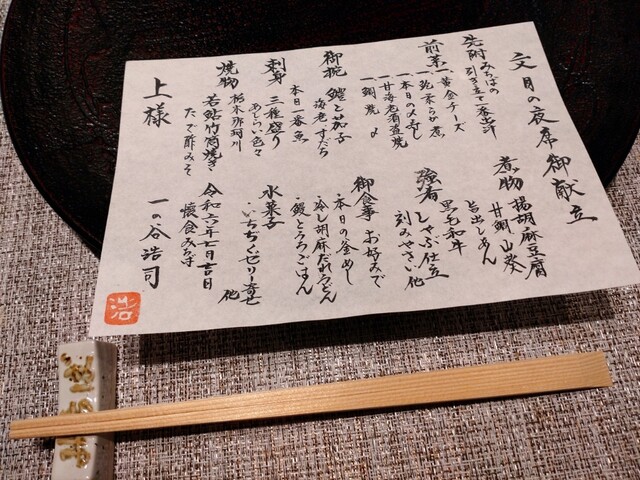 文月の夜席御献立
先附
みちばの
引き立て一番出汁
前菜
一、黄金チーズ
一、乾柔らか煮
一、本日の〆肴
一、甘海老有造焼
一、鯛焼 〆
御椀
鱧と茄子
海老 すだち
刺身
本日一番魚
三種盛り
あしらい色々
焼物
栃木那珂川
若鮎竹筒焼き
たで酢みそ
上様
煮物
揚胡麻豆腐
甘鯛 山葵
旨出しあん
強肴
黒毛和牛
しゃぶ仕立
刻みやさい他
御食事
お好みで
・本日の釜めし
・冷し胡麻だれうどん
・鰻とろろごはん
水菓子
・いちじくゼリー寄せ
他
懐食みちば
一の谷浩司
浩